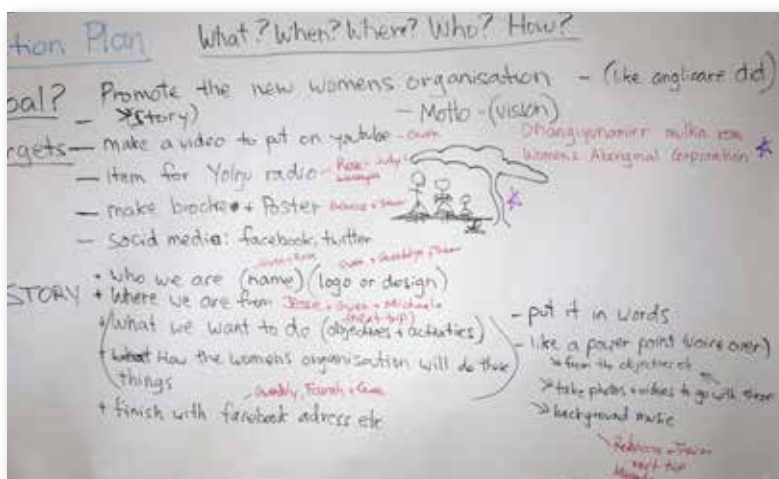 tion Plan What? When? Where? Who? How?
oal? Promote the new womens organisation - (like anglicare did)
(story) - Motto - (vision)
rgets - make a video to put on youtube -
Womens Aboriginal Corporation
- item for Yolŋu radio - Rose - July
- make + Poster
- social media: facebook, twitter
STORY + Who we are (name) (logo or design)
+ Where we are from Jesse + + Michaela
(next trip)
+ What we want to do (objectives + activities)
+ How the womens organisation will do these
things
+ finish with facebook adress etc
- put it in words
- like a power point (voice over)
> from the objectives etc
> take photos + videos to go with these
> background music
next trip